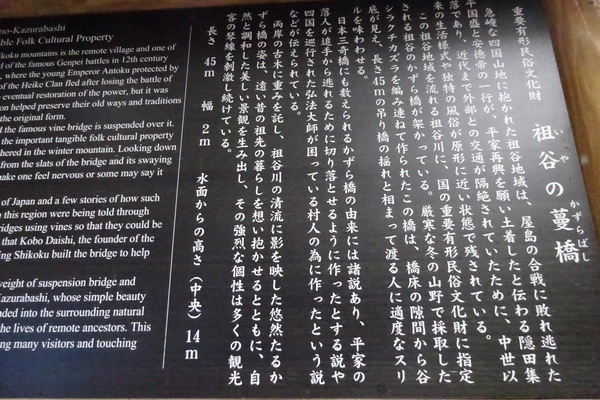 重要有形民俗文化財
祖谷の蔓橋
いや
かずらばし
急峻な四国山地に抱かれた祖谷地域は、屋島の合戦に敗れ逃れた
平国盛と安徳帝の一行が、平家再興を願い土着したと伝わる隠田集
落であり、近代まで外部との交通が隔絶されていたために、中世以
来の生活様式や独特の風俗が原形に近い状態で残されている。
この祖谷地域を流れる祖谷川に、国の重要有形民俗文化財に指定
される祖谷のかずら橋が架かっている。厳寒な冬の山野で採取した
シラクチカズラを編み連ねて作られたこの橋は、橋床の隙間から谷
底が見え、長さ45mの吊り橋の揺れと相まって渡る人に適度なスリ
ルを味わわせる。
日本三奇橋にも数えられるかずら橋の由来には諸説あり、平家の
落人が追手から逃れるために切り落とせるように作ったとする説や
四国を巡行された弘法大師が困っている村人の為に作ったという説
などが伝えられている。
両岸の古木に重みを託し、祖谷川の清流に影を映した悠然たるか
ずら橋の姿は、遠い昔の祖先の暮らしを想い抱かせるとともに、自
然と調和した美しい景観を生み出し、その強烈な個性は多くの観光
客の琴線を刺激し続けている。
長さ 45m 幅 2m 水面からの高さ（中央）14m
no-Kazurabashi
ble Folk Cultural Property
hikoku mountains is the remote village and one of
d of the famous Genpei battles in 12th century
, where the young Emperor Antoku protected by
of the Heike Clan fled after losing the battle of
eventual restoration of the power, but it was
on helped preserve their old ways and traditions
the original form.
d the famous vine bridge is suspended over it.
the important tangible folk cultural property
hered in the winter mountain. Looking down
from the slats of the bridge and its swaying
ake one feel nervous or some may say it
of Japan and a few stories of how such
this region were being told through
ridges using vines so that they could be
that Kobo Daishi, the founder of the
ng Shikoku built the bridge to help
weight of suspension bridge and
azurabashi, whose simple beauty
nded into the surrounding natural
the lives of remote ancestors. This
ng many visitors and touching